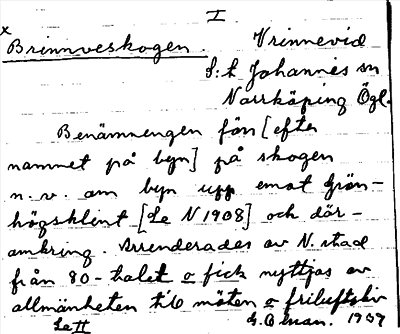 I
x
Brinnveskogen. Vrinnevid
S:t Johannis sn
Norrköping Ögl.
Benämningen förr [efter
namnet på byn] på skogen
n.v. om byn upp emot Grön-
högsklint [Se N 1908] och där-
omkring. Arrenderades av N. stad
från 80-talet o fick nyttjas av
allmänheten till möten o friluftsliv
Se II 1937